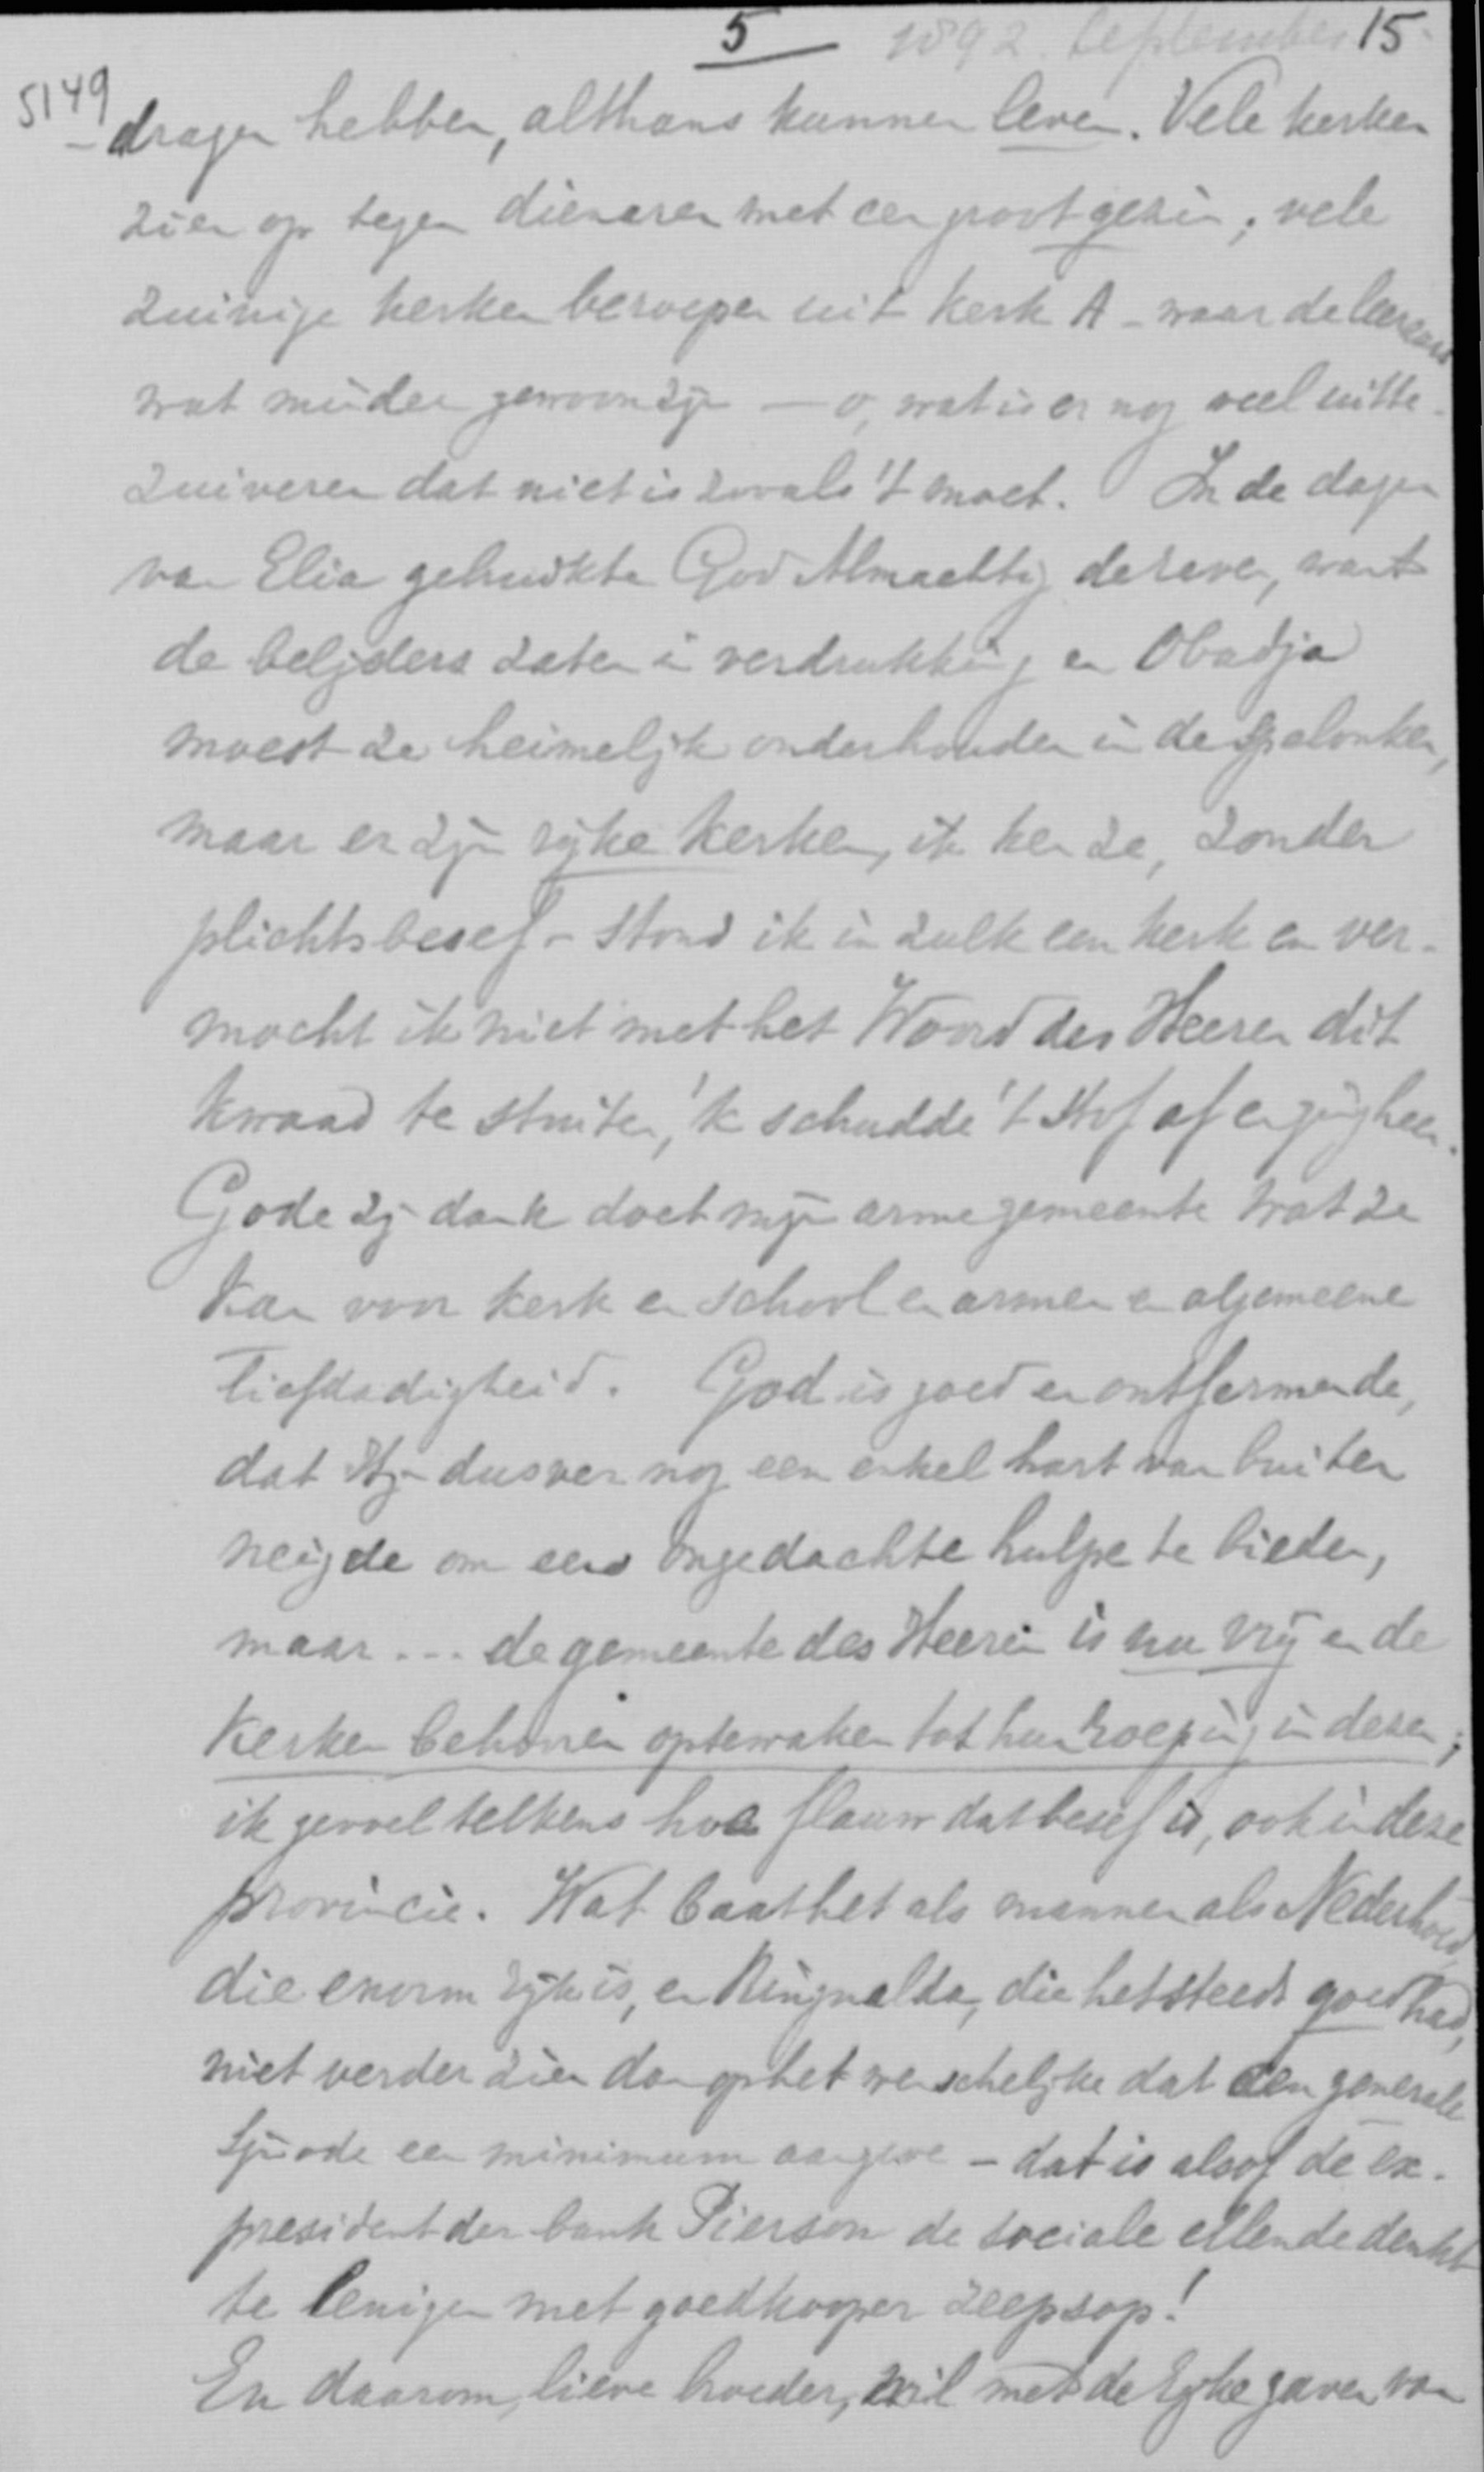 5 1892 September 15
5149
dragen hebben, althans kunnen leven. Vele kerken
zien op tegen dienaren met een groot gezin; vele
zuinige kerken beroepen uit kerk A - waar de leeraars
wat minder gewoon zijn — o, wat is er nog veel uit te
zuiveren dat niet is zooals 't moet. In de dagen
van Elia gebruikte God Almachtig de raven, want
de belijders zaten in verdrukking en Obadja
moest ze heimelijk onderhouden in de spelonken,
maar er zijn rijke kerken, ik ken ze, zonder
plichtsbesef - stond ik in zulk een kerk en ver-
mocht ik niet met het Woord des Heeren dit
kwaad te stuiten, 'k schudde 't stof af en ging heen.
Gode zij dank doet mijn arme gemeente wat ze
kan voor kerk en school en armen en algemeene
liefdadigheid. God is goed en ontfermende,
dat Hij dusver nog een enkel hart van buiten
neigde om eens ongedachte hulpe te bieden,
maar ... de gemeente des Heeren is nu vrij en de
kerken behooren optewaken tot hun roeping in dezen;
ik gevoel telkens hoe flauw dat besef is, ook in deze
provincie. Wat baat het als mannen als Nederhoed
die enorm rijk is, en Ringnalda, die het steeds goed had,
niet verder zien dan op het wenschelijke dat een generale
Synode een minimum aangeve - dat is alsof de ex-
president der bank Pierson de sociale ellende denkt
te lenigen met goedkooper zeepsop!
En daarom, lieve broeder, wil met de rijke gaven van